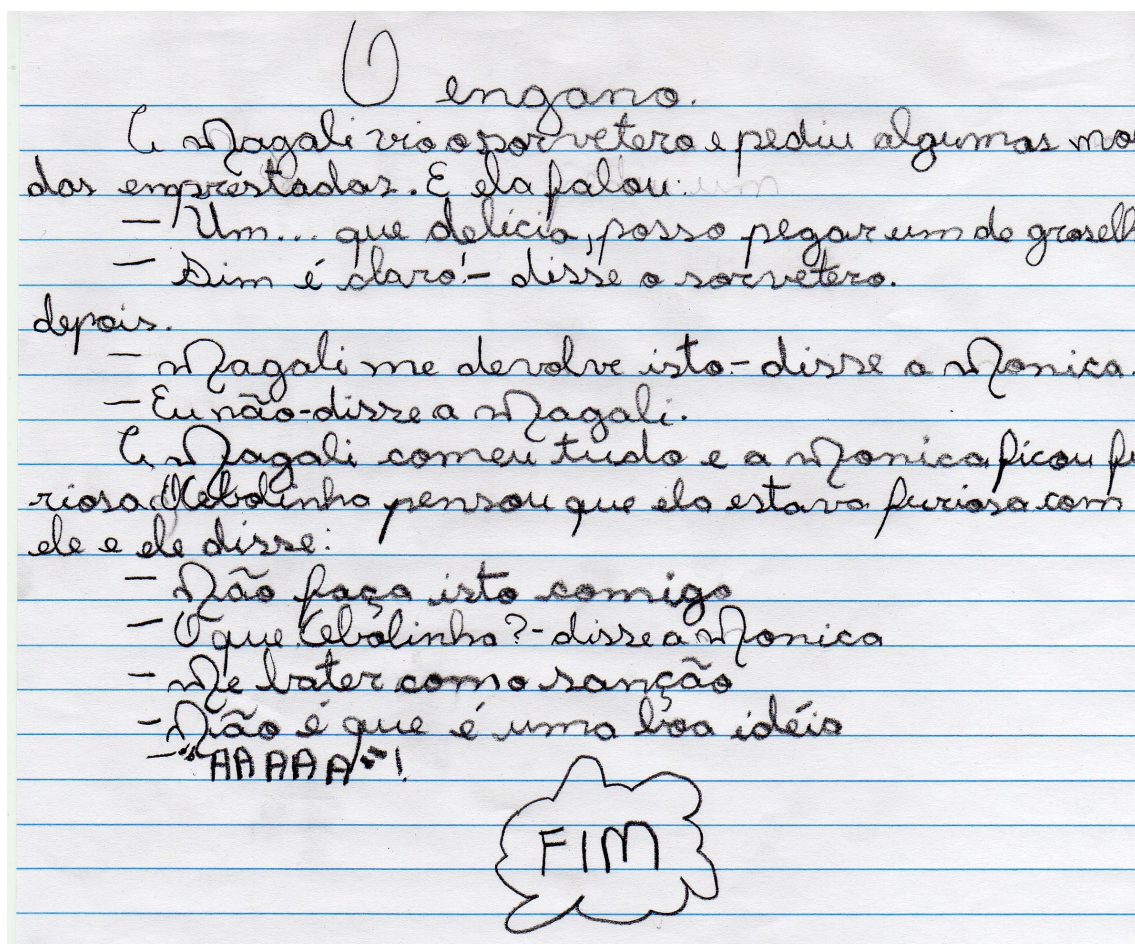 O engano.
A Magali vio o sorvetero e pediu algumas mo
das emprestadas. E ela falou:
– Um... que delícia, posso pegar um de groselh
– Sim é claro! – disse o sorvetero.
depois.
– Magali me devolve isto – disse a Monica.
– Eu não – disse a Magali.
A Magali comeu tudo e a Monica ficou fu
riosa. O Cebolinha pensou que ela estava furiosa com
ele e ele disse:
– Não faça isto comigo
– O que Cebolinha? – disse a Monica
– Me bater como sanção
– Não é que é uma boa idéia
– "AAAAA"!
FIM